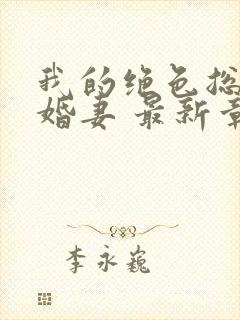 我的绝色总
婚妻 最新章
李永巍